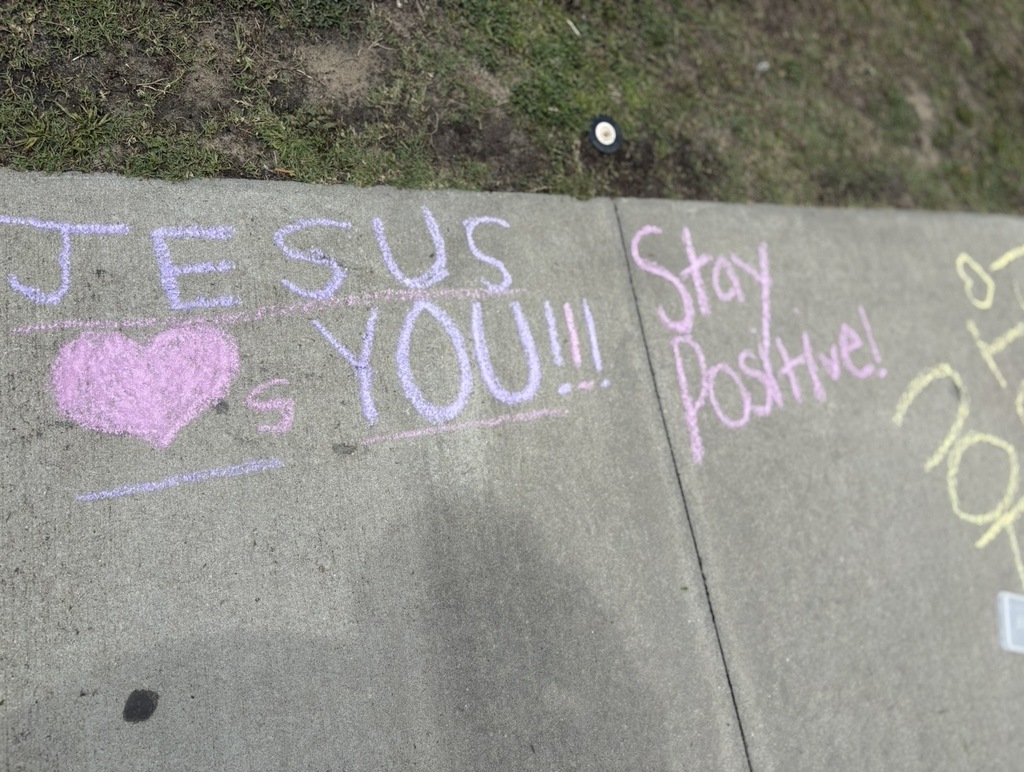 JESUS
♥s YOU!!!
Stay
Positive!